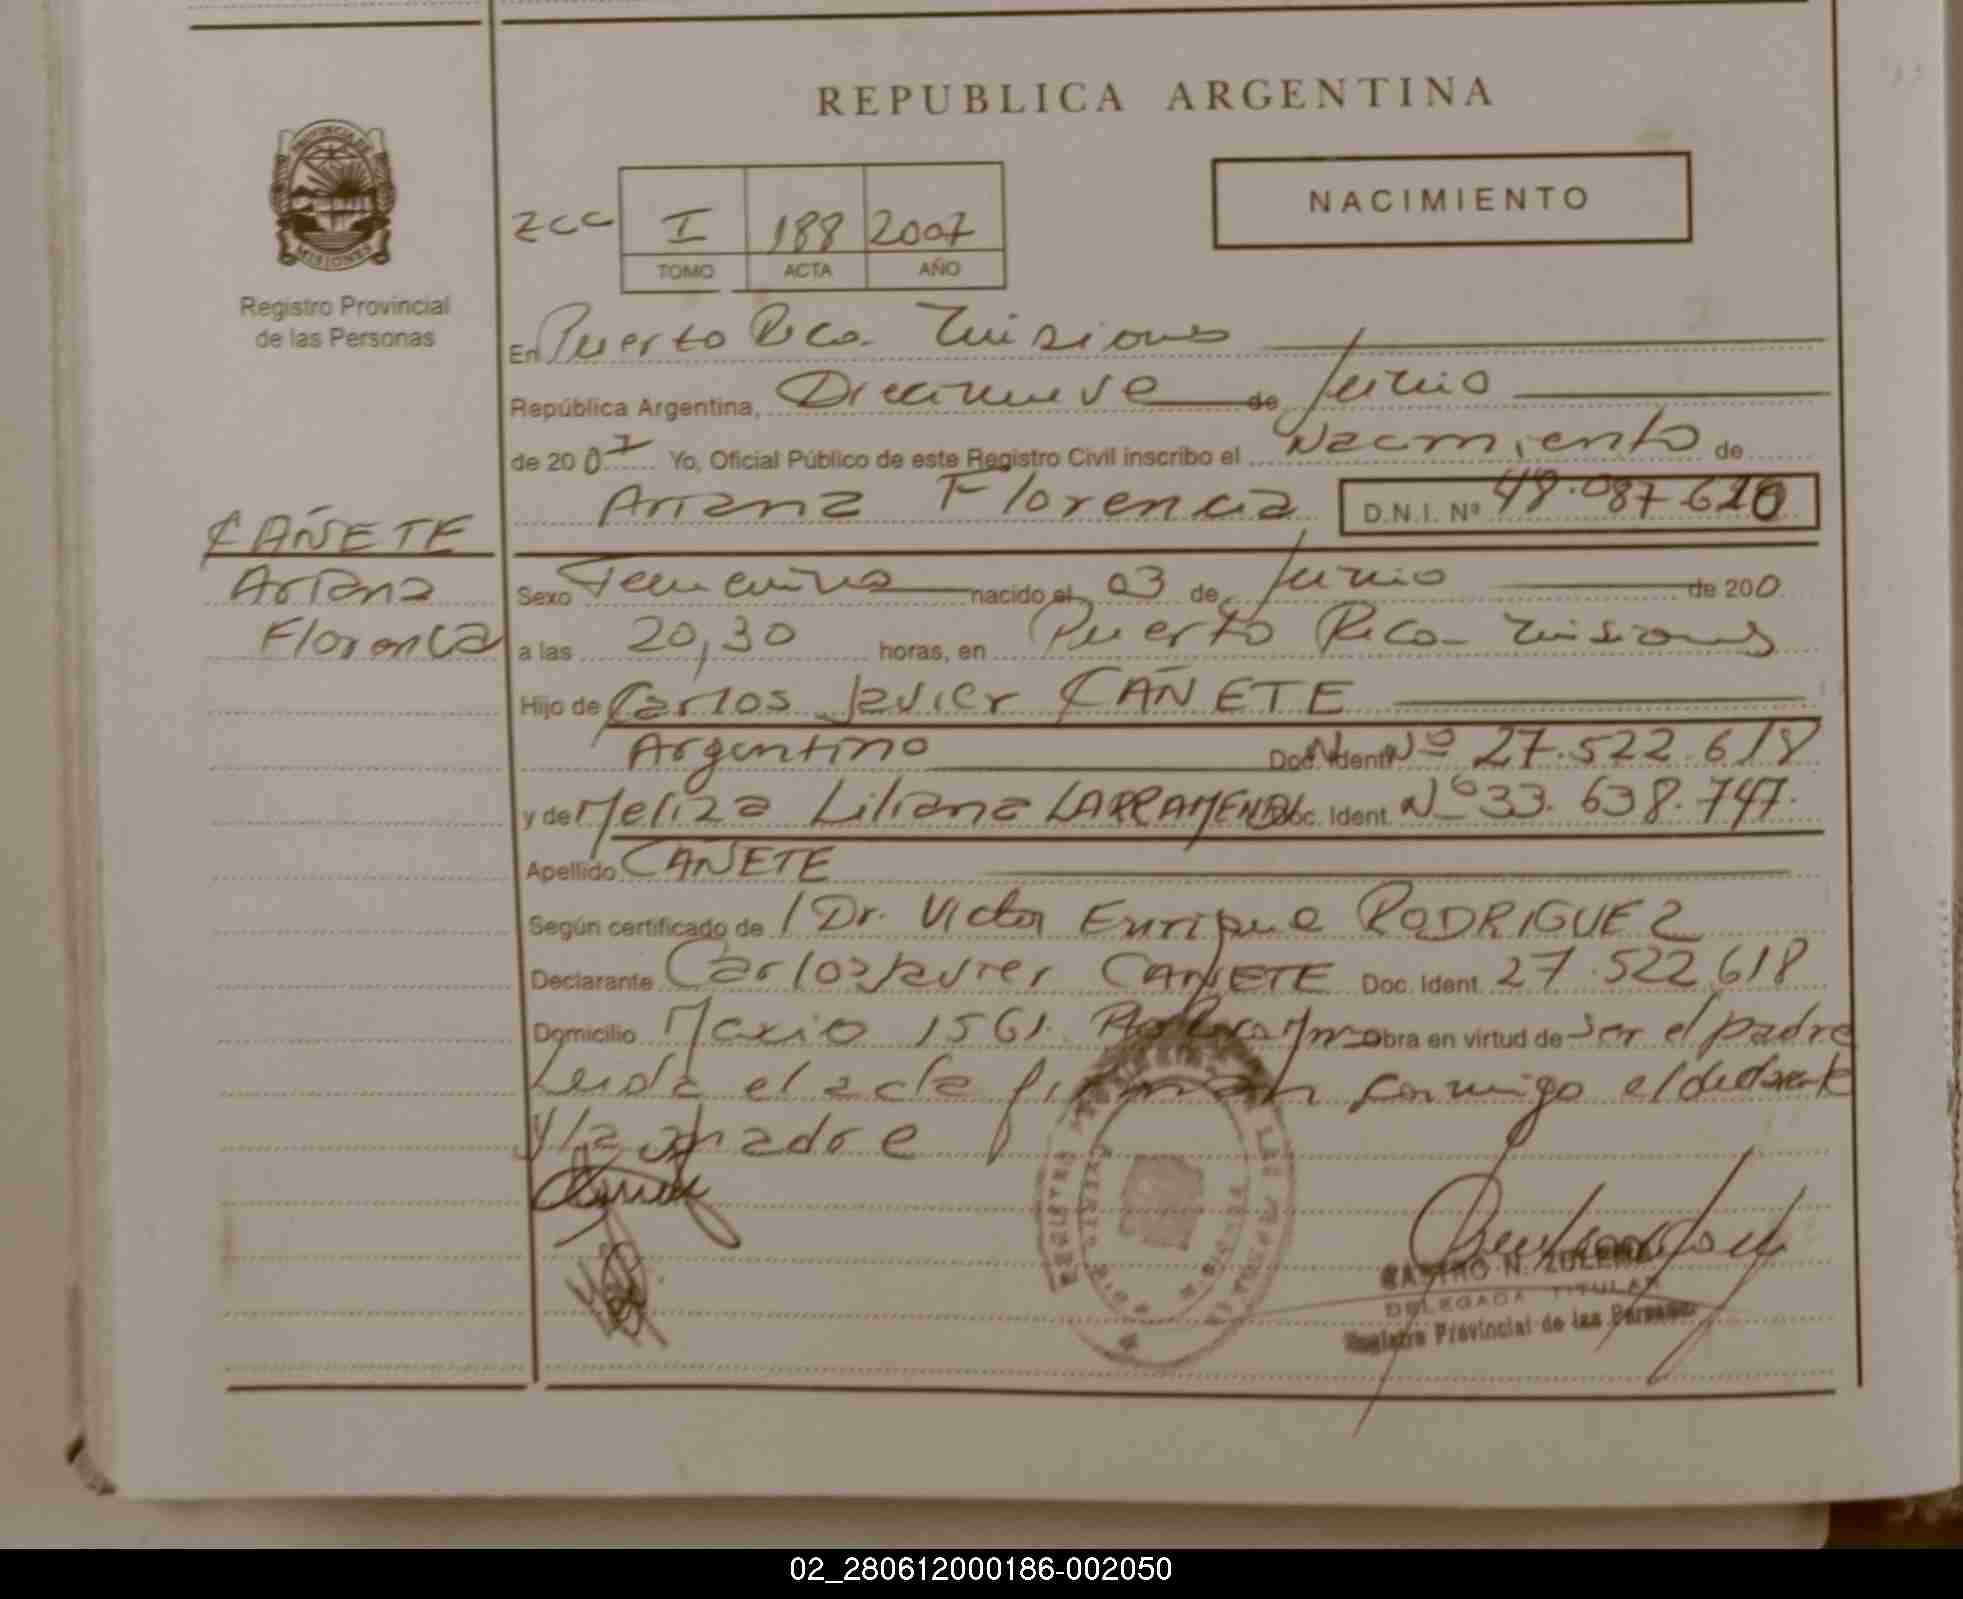 REPUBLICA ARGENTINA
PROVINCIA DE
MISIONES
Registro Provincial
de las Personas
NACIMIENTO
I 188 2007
TOMO ACTA AÑO
En Puerto Rico - Misiones
República Argentina, Diecinueve de Junio
de 2007 Yo, Oficial Público de este Registro Civil inscribo el Nacimiento de
Ariana Florencia D.N.I. Nº 48.087.620
CAÑETE
Ariana
Florencia
Sexo Femenino nacido el 03 de Junio de 200
a las 20,30 horas, en Puerto Rico - Misiones
Hijo de Carlos Javier CAÑETE
Argentino Doc. Ident. Nº 27.522.618
y de Meliza Liliana Doc. Ident. Nº 33.638.747.
Apellido CAÑETE
Según certificado de Dr. Victor Enrique RODRIGUEZ
Declarante Carlos Javier CAÑETE Doc. Ident. 27.522.618
Domicilio 1561. obra en virtud de ser el padre
Leida el acta firman conmigo el declarante
y la madre
CASTRO N. ZULEMA
DELEGADA TITULAR
Registro Provincial de las Personas
02_280612000186-002050